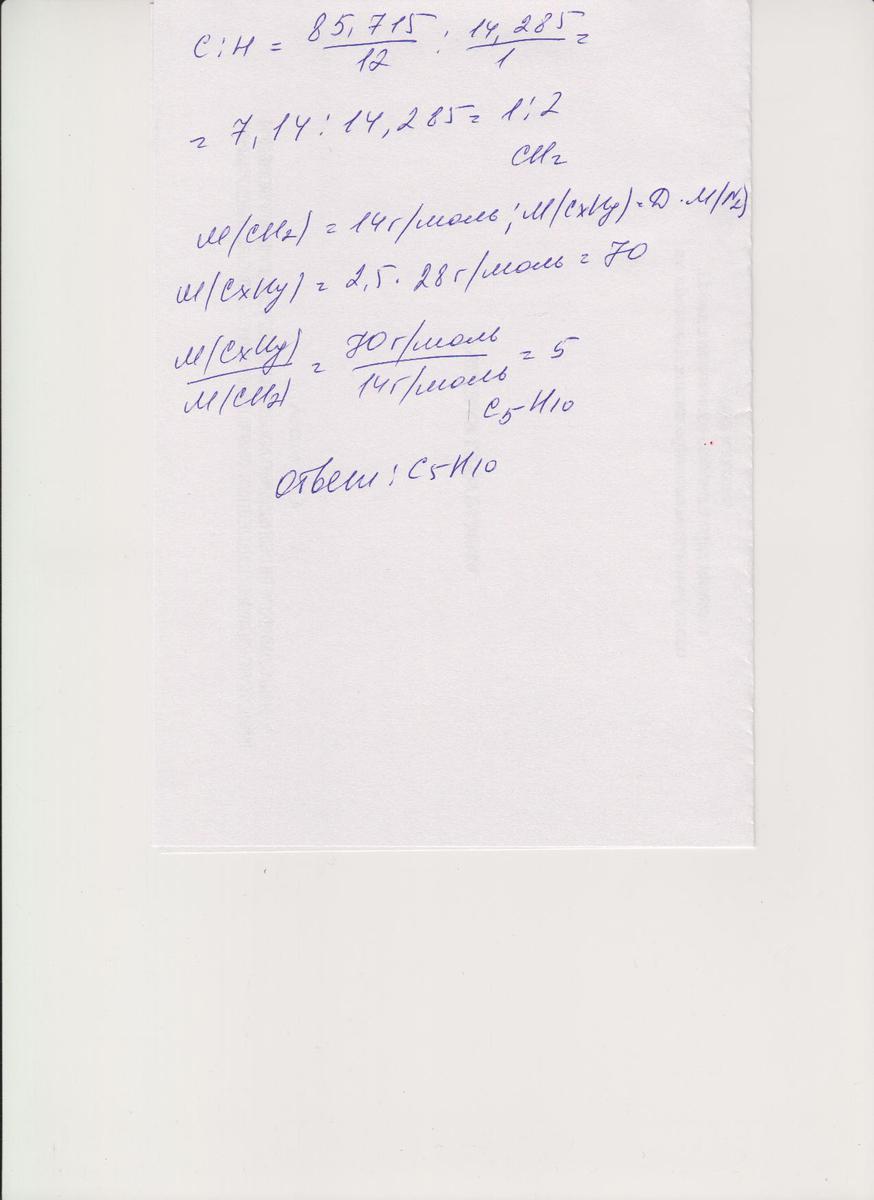 C:H = 85,715/12 : 14,285/1 =
= 7,14 : 14,285 = 1:2
CH₂
M(CH₂) = 14г/моль; M(CxHy) = D · M(N₂)
M(CxHy) = 2,5 · 28г/моль = 70
M(CxHy)/M(CH₂) = 70г/моль/14г/моль = 5
C₅H₁₀
Ответ: C₅H₁₀